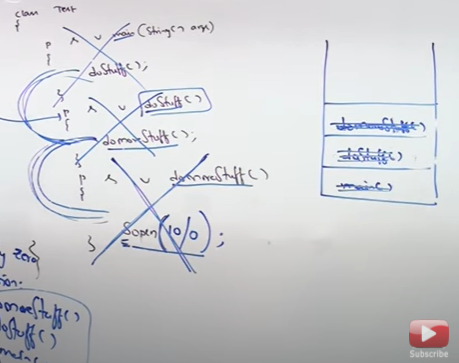 class Test
{
p s v main(String[] args)
{
doStuff();
}
p s v doStuff()
{
domoreStuff();
}
p s v domoreStuff()
{
Sopen(10/0);
}
}
domoreStuff()
doStuff()
main()
by zero
domoreStuff()
doStuff()
main()
Subscribe